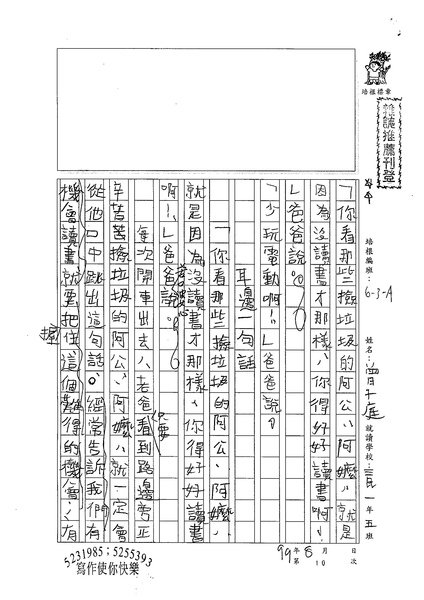 培根標章
推薦刊登
培根編班：6-3-A
姓名：
就讀學校：
一年五班
99年
8月
日
第10次
「你看那些撿垃圾的阿公、阿嬤、就是
因為沒讀書才那樣、你得好好讀書啊！
」爸爸說。
「少玩電動啊！」爸爸說。
耳邊一句話
「你看那些撿垃圾的阿公、阿嬤、
就是因為沒讀書才那樣、你得好好讀書
啊！」爸爸說。
每次開車出去、老爸看到路邊旁正
辛苦撿垃圾的阿公、阿嬤、就一定會
從他口中跳出這句話。經常告訴我們有
機會讀書就要把住這個難得的機會、有
只要
握
5231985；5255393
寫作使你快樂